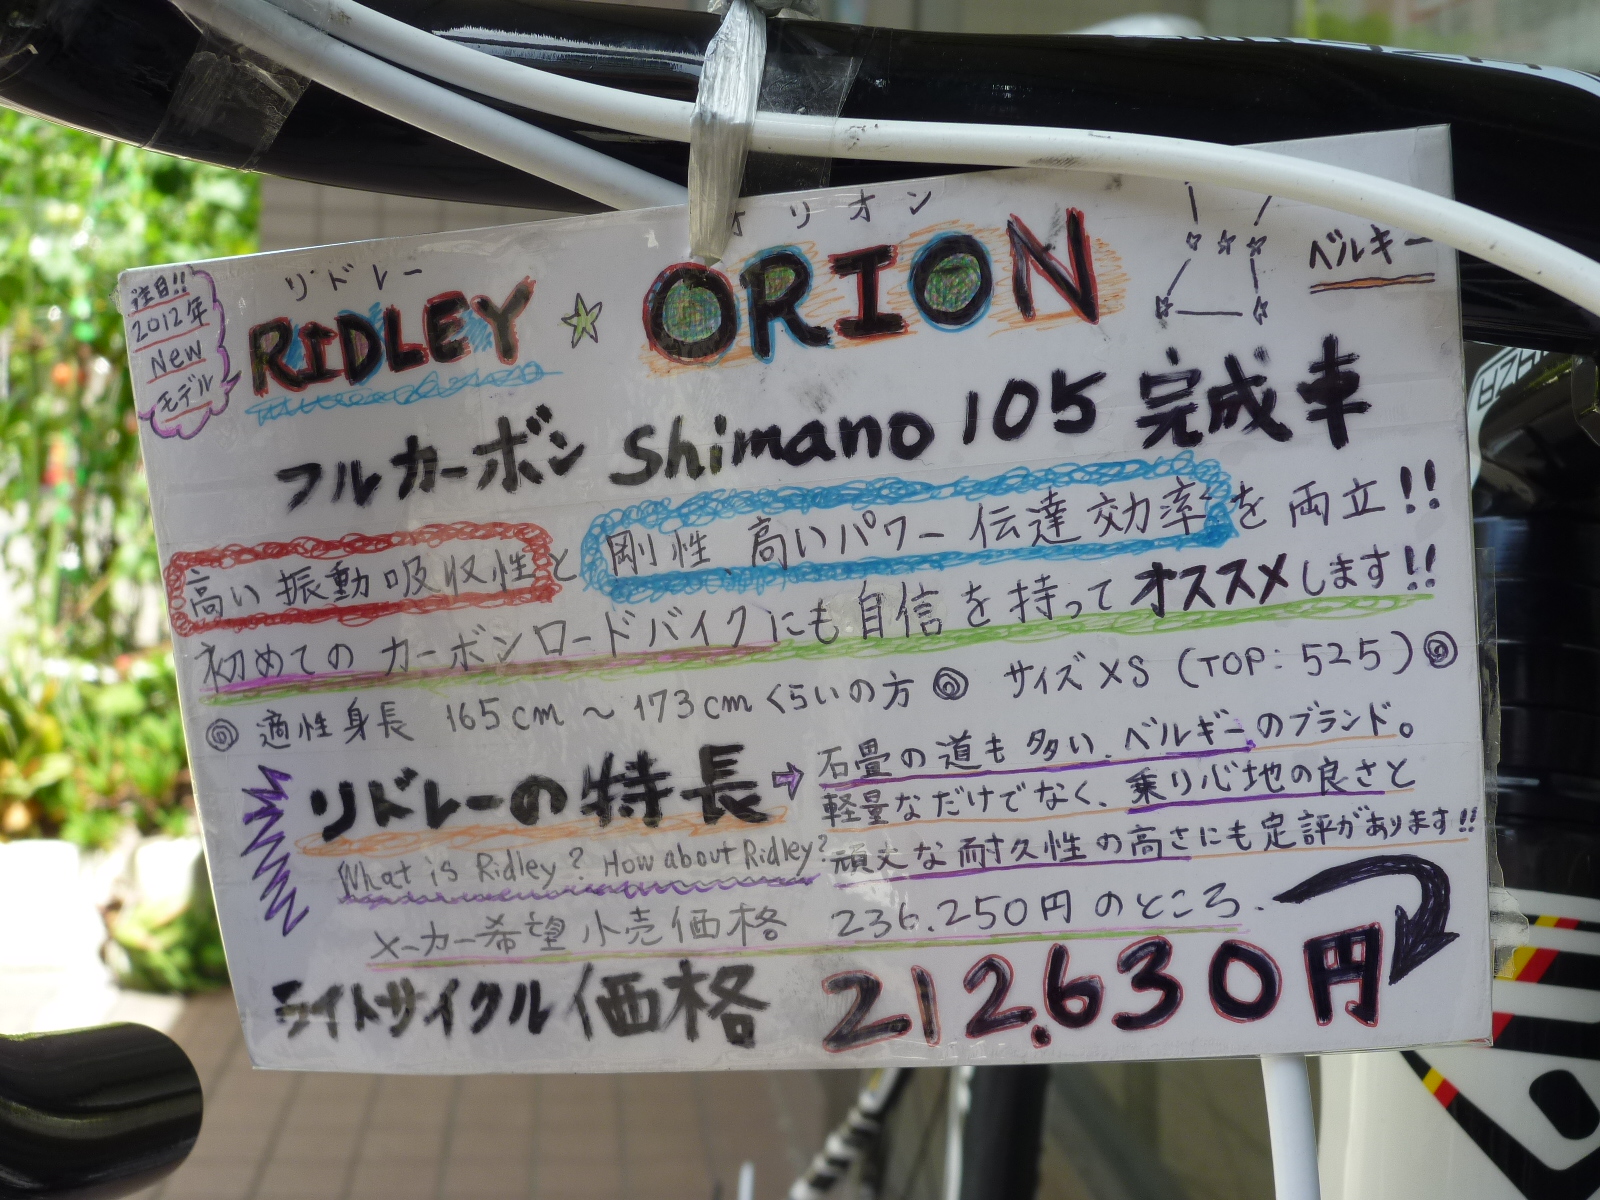 注目!!
2012年
New
モデル
リドレー
RIDLEY ☆ ORION
オリオン
ベルギー
フルカーボン Shimano 105 完成車
高い振動吸収性と剛性、高いパワー伝達効率を両立!!
初めてのカーボンロードバイクにも自信を持ってオススメします!!
◎ 適性身長 165cm 〜 173cmくらいの方 ◎ サイズXS (TOP: 525) ◎
リドレーの特長 ⇨ 石畳の道も多い、ベルギーのブランド。
軽量なだけでなく、乗り心地の良さと
頑丈な耐久性の高さにも定評があります!!
What is Ridley? How about Ridley?
メーカー希望小売価格 236.250円のところ.
ライトサイクル価格 212.630円